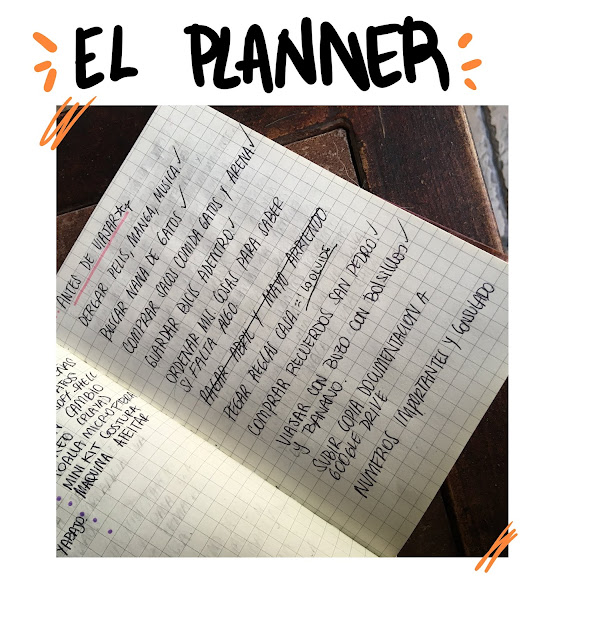 EL PLANNER
ANTES DE VIAJAR
PELIS, MANGA, MUSICA ✓
BUSCAR NANA DE GATOS ✓
COMPRAR SACOS COMIDA GATOS Y ARENA ✓
GUARDAR BICIS ADENTRO ✓
ORDENAR MIS COSAS PARA SABER
SI FALTA ALGO.
PAGAR ABRIL Y MAYO ARRIENDO
PEGAR CAJA =
COMPRAR RECUERDOS SAN PEDRO ✓
VIAJAR CON BUZO CON BOLSILLOS ✓
Y BANANO.
SUBIR COPIA DOCUMENTACION A
GOOGLE DRIVE
NUMEROS IMPORTANTES Y CONSULADO
SHELL
CAMBIO
(PLAYA)
TOALLA
MINI KIT COSTURA
MAQUINA AFEITAR